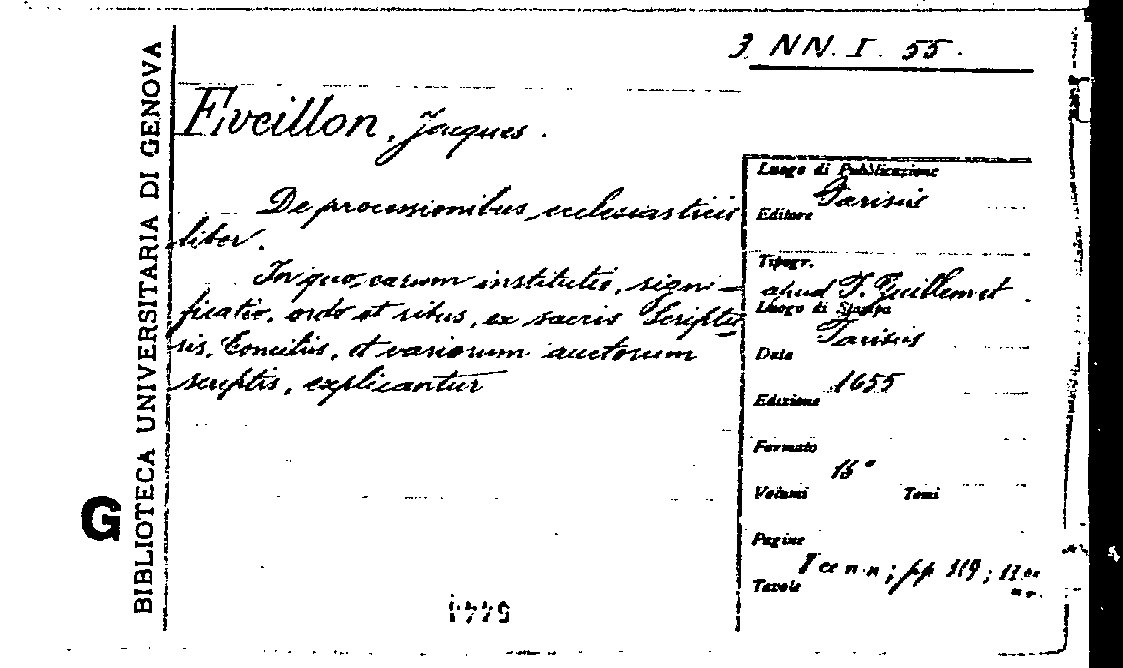 3 NN. I. 55.
BIBLIOTECA UNIVERSITARIA DI GENOVA
G
Eveillon, Jacques.
De processionibus ecclesiasticis
liber.
In quo, earum institutio, signi-
ficatio, ordo et ritus, ex sacris Scriptu
ris, Conciliis, et variorum auctorum
scriptis, explicantur
Luogo di Pubblicazione
Parisiis
Editore
Tipogr.
apud J. Guillemot
Luogo di Stampa
Parisiis
Data
1655
Edizione
Formato
Volumi Tomi
Pagine
Tavole